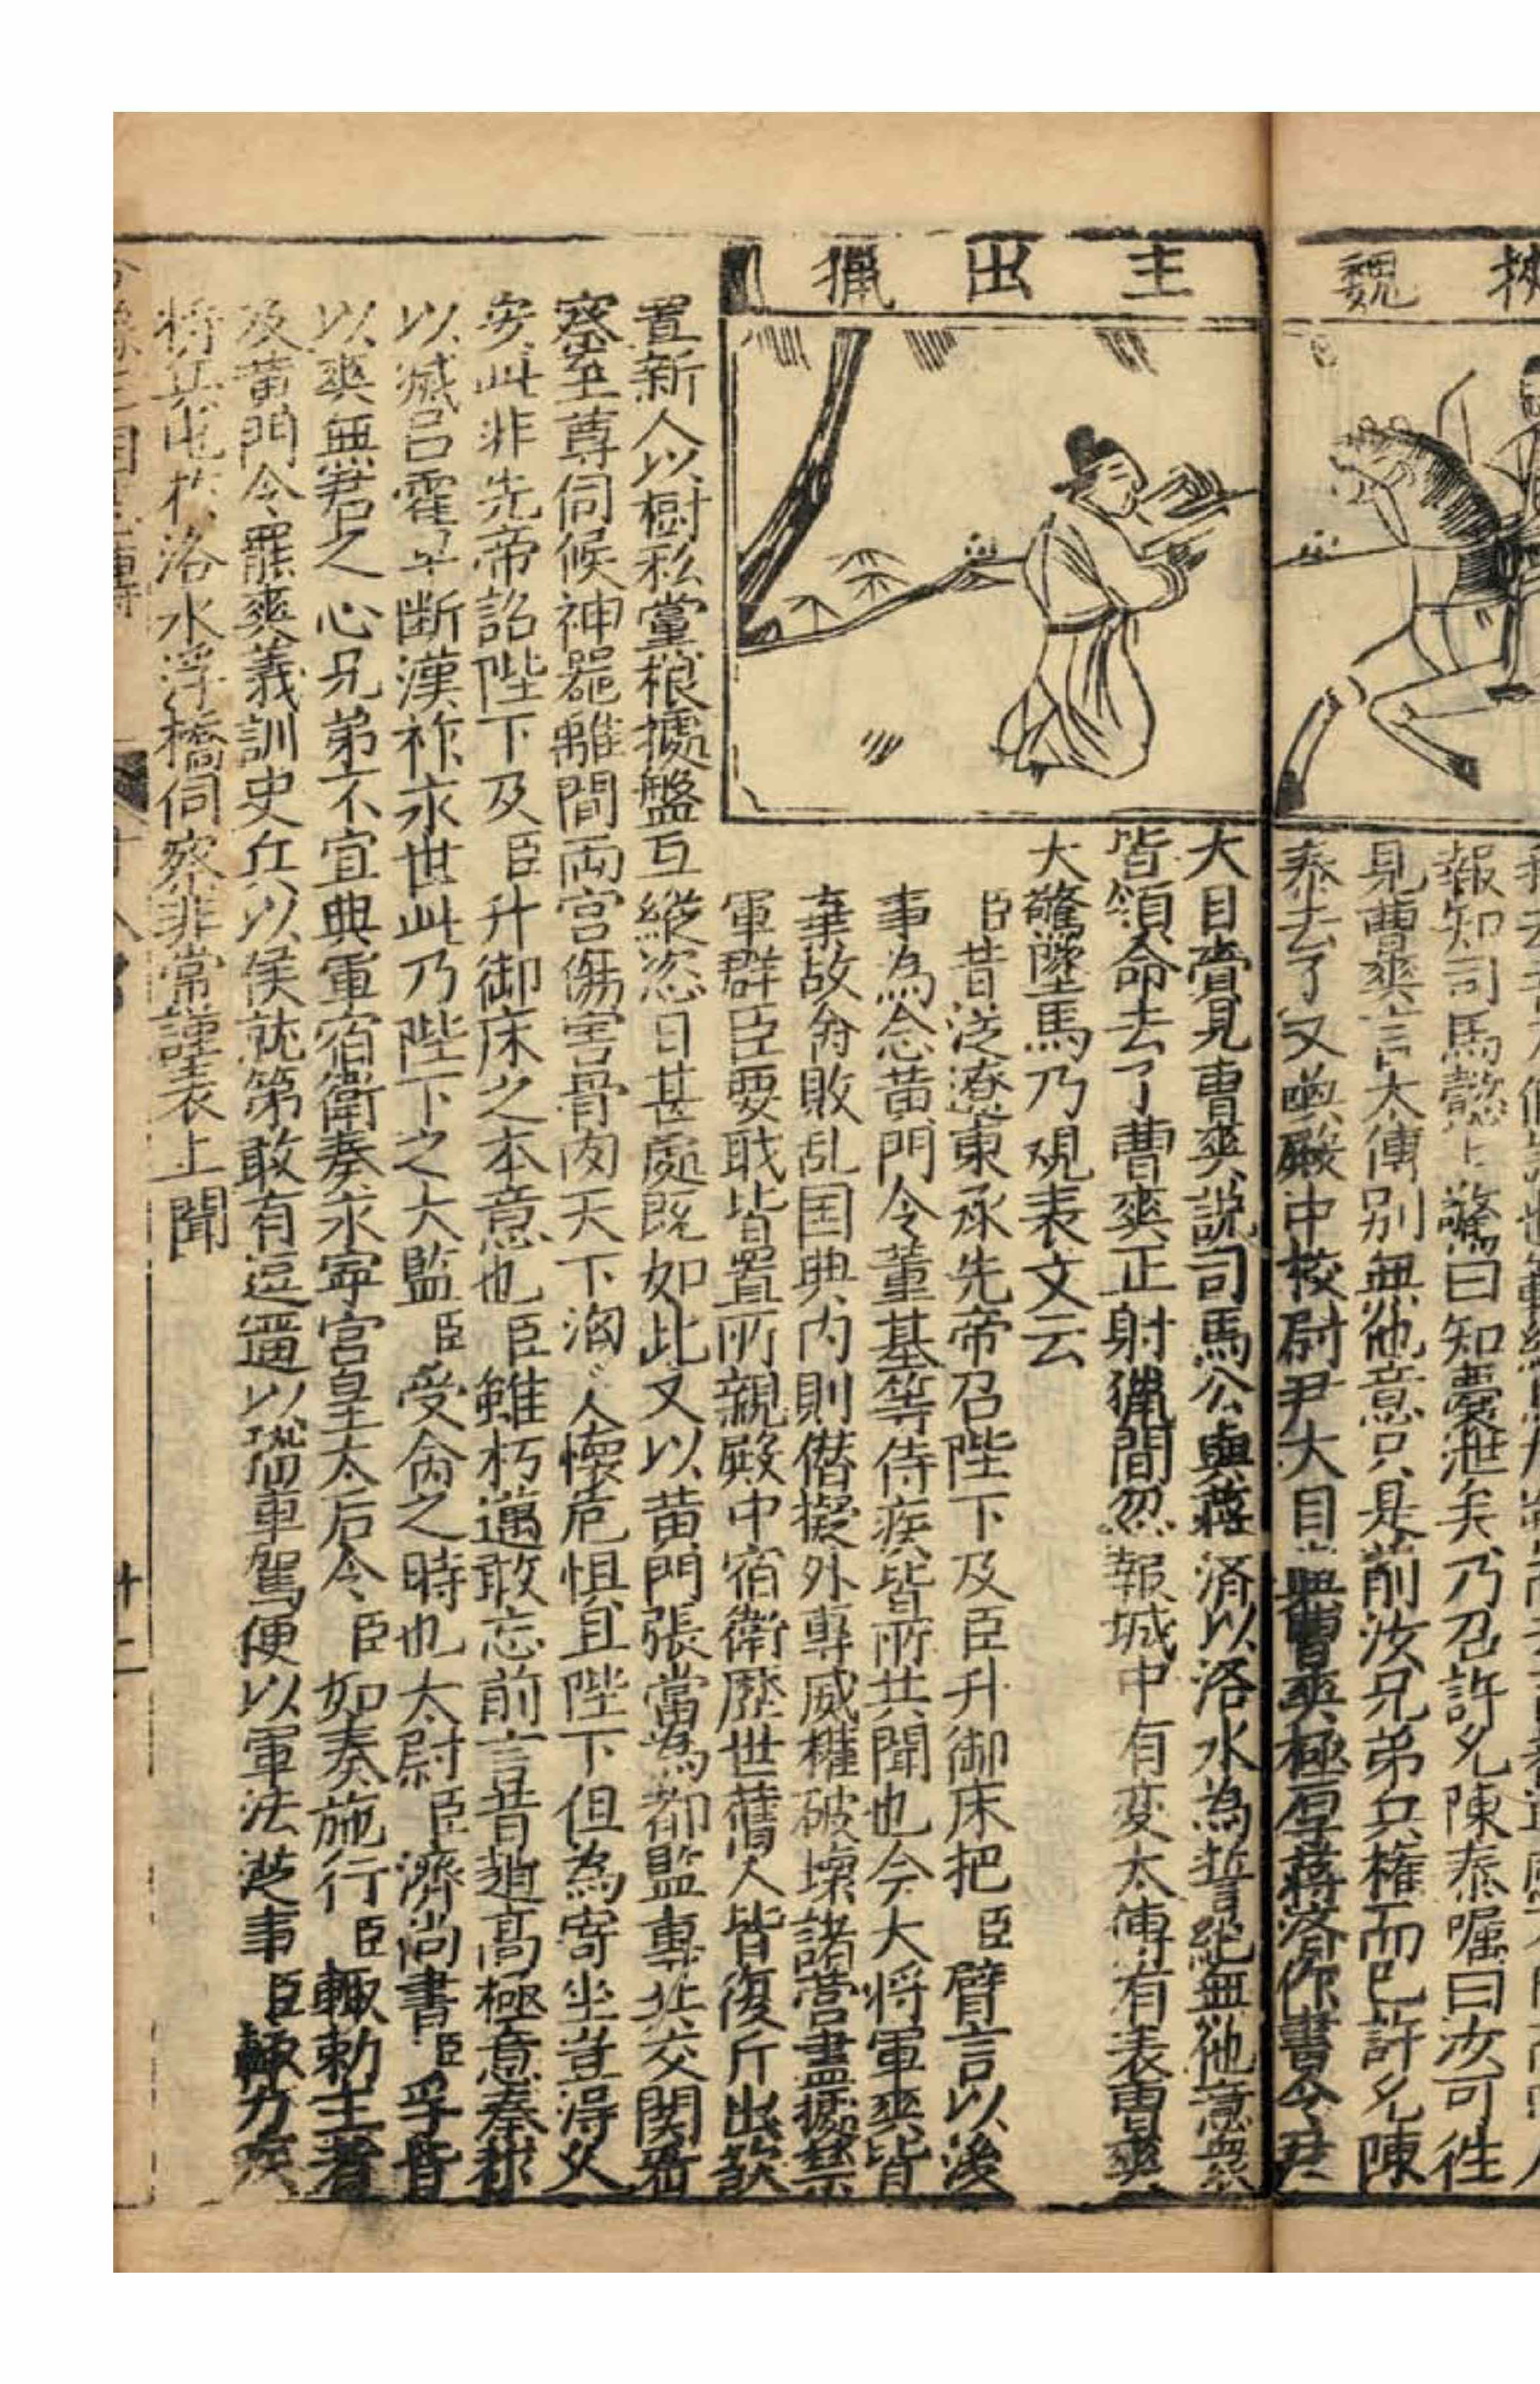 魏
主出獵
報知司馬懿懿驚曰知囊泄矣乃召許允陳泰囑曰汝可徃
見曹爽言太傅别無他意只是前汝兄弟兵權而已許允陳
泰去了又與殿中校尉尹大目曹爽極厚蔣濟作書令尹
大目賫見曹爽說司馬公與蔣済以洛水為誓絕無他意
皆領命去了曹爽正射獵間忽報城中有変太傅有表曹爽
大驚墜馬乃覌表文云
臣昔従遼東承先帝召陛下及臣升御床把臣臂言以後
事為念黄門令董基等侍疾皆所共聞也今大将軍爽皆
棄故命敗乱囯典内則僭擬外專威權破壞諸营盡㨿禁
軍群臣要戝皆置所親殿中宿衛歷世舊人皆復斤出欲
置新人以樹私黨根據盤互縱恣日甚處既如此又以黄門張當為都監專共交関看
察至尊伺候神器離間両宮傷害骨肉天下洶〻人懷危惧且陛下但為寄坐豈淂久
安此非先帝詔陛下及臣升御床之本意也臣雖朽邁敢忘前言昔趙高極意秦
以滅吕霍早断漢祚永世此乃陛下之大監臣受命之時也太尉臣濟尚書臣孚皆
以爽無君之心兄弟不宜典軍宿衛奏永寧宫皇太后令臣如奏施行臣輙勅主者
及黄門令罷爽義訓吏兵以侯就第敢有逗遛以㳂車駕便以軍法従事臣輙力疾
将兵屯於洛水浮橋伺察非常謹表上聞